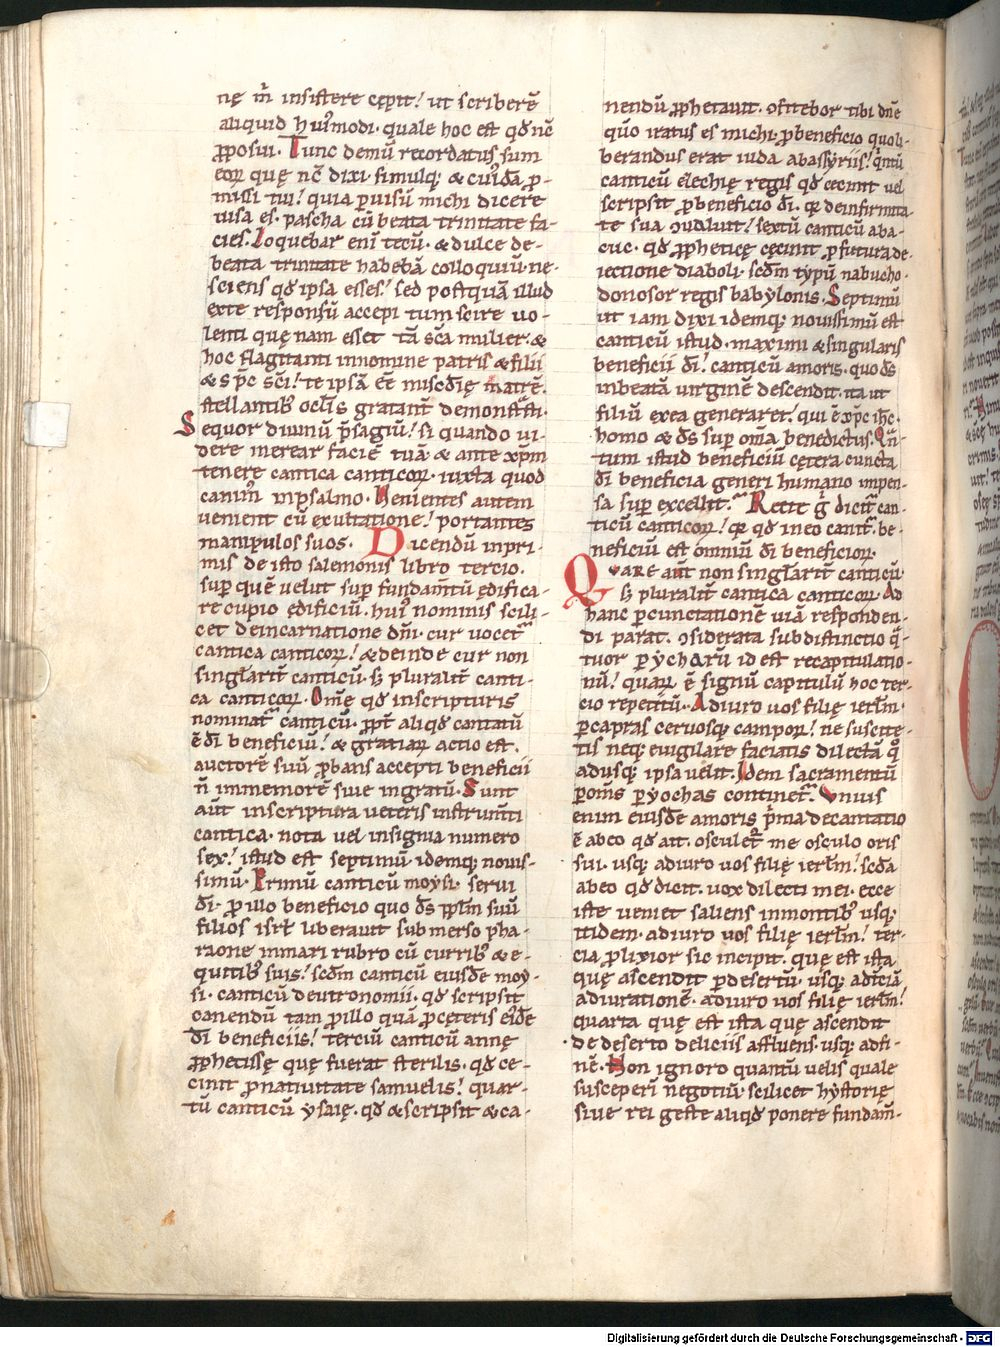 nę m̄ insistere cępit! ut scriberē
aliquid hui᷒modi· quale hoc est qđ nc̄
ꝓposui. Tunc demū recordatus sum
eoꝝ quę nc̄ dixi simulq; & cui᷒dā ꝓ-
missi tui! quia ꝑuisū michi dicere
uisa es· pascha cū beata trinitate fa-
cies. Loquebar enī tecū· & dulce de-
beata trinitate habebā colloquiū· ne-
sciens qđ ipsa esses! sed postquā illud
exte responsū accepi tum scire uo-
lenti quę nam esset tā sc̄a mulier· &
hoc flagitanti innomine patris & filii
& sp̄c sc̄i! te ipsā ēē misc̄dię matrē·
stellantib᷒ oc̄lis gratant̄ demonst̄sti·
Sequor diuinū p̄sagiū! si quando ui-
dere merear faciē tuā· & ante xp̄m
tenere cantica canticoꝝ· iuxta quod
canim᷒ inpsalmo· Uenientes autem
uenient cū exultatione! portantes
manipulos suos. Dicendū inpri-
mis de isto salemonis libro tercio.
sup̄ quē velut sup̄ fundam̄tū ędifica-
re cupio ędificiū· hui᷒ nominis scili-
cet deincarnatione dn̄i· cur uocet̄
cantica canticoꝝ! & deinde cur non
singłarit̄ canticū· sꝫ pluralit̄ canti-
ca canticoꝝ. Om̄e qđ inscripturis
nominat̄ canticū· ꝓpt̄ aliqđ cantatū
ē đi beneficiū! & gratiaꝝ actio est.
auctorē suū ꝓbans accepti beneficii
n̄ immemorē siue ingratū. Sunt
aūt inscriptura ueteris instrum̄ti
cantica· nota uel insignia numero
sex! istud est septimū· idemq; nouis-
simū. Primū canticū moysi· serui
đi· ꝓ illo beneficio quo đs ppłm suū
filios isrł liberauit submerso pha-
raone inmari rubro cū currib᷒ & e-
quitib᷒ suis! scđm canticū eiusdē moy-
si· canticū deutronomii· qđ scripsit
canendū tam ꝓ illo quā ꝓ cęteris ei᷒dē
đi beneficiis! terciū canticū annę
ꝓphetissę quę fuerat sterilis· qđ ce-
cinit ꝓ natiuitate samuelis! quar-
tū canticū ysaię· qđ & scripsit & ca-
nendū ꝓphetauit. ↄfitebor tibi dn̄e
quō iratus es michi· ꝓ beneficio quoli-
berandus erat iuda abassyriis! qⁱntū
canticū ezechię regis qđ cecinit uel
scripsit ꝓ beneficio đi· qꝛ deinfirmita-
te sua ↄualuit! sextū canticū aba-
cuc· qđ ꝓpheticę cęcinit ꝓ futura de-
iectione diaboli· scđm typū nabucho-
donosor regis babylonis. Septimū
ut iam dixi idemq; nouissimū est
canticū istud· maximi & singularis
beneficii đi! canticū amoris· quo đs
inbeatā uirginē descendit· ita ut
filiū exea generaret! qui ē xp̄c ihc̄·
homo & đs sup̄ om̄a benedictus. Qn̄-
tum istud beneficiū cętera cuncta
đi beneficia generi humano impen-
sa sup̄ excellit. Recte g̊ dicit̄ can-
ticū canticoꝝ! qꝛ qđ in eo canit̄· be-
neficiū est omniū đi beneficioꝝ·
Quare aūt non singłarit̄ canticū·
sꝫ pluralit̄ cantica canticoꝝ. Ad
hanc ꝑcunctationē uiā responden-
di parat· ↄsiderata subdistinctio q̄-
tuor ꝑycharū id est recapitulatio-
nū! quaꝝ ē signū capitulū hoc ter-
cio repetitū. Adiuro uos filię ierłm·
ꝑ capras ceruosq; campoꝝ! ne suscite-
tis neq; euigilare faciatis dilectā qͦ
adusq; ipsa uelit. Idem sacramentū
ꝑ om̄s ꝑyochas continet̄. Unius
enim eiusdē amoris p̄ma decantatio
ē abeo qđ ait· osculet̄ me osculo oris
sui· usq; adiuro uos filię ierłm! scđa
abeo qđ dicit· uox dilecti mei· ecce
iste ueniet saliens inmontib᷒ usq;
itidem· adiuro uos filię ierłm! ter-
cia ꝓlixior sic incipit· quę est ista
quę ascendit ꝑ desertū· usq; ad t̄ciā
adiurationē· adiuro uos filię ierłm!
quarta quę est ista quę ascendit
de deserto deliciis affluens· usq; adfi-
nē. Non ignoro quantū uelis quale
susceperī negotiū· scilicet hystorię
siue rei gestę aliqđ ponere fundam̄-
Digitalisierung gefördert durch die Deutsche Forschungsgemeinschaft · DFG